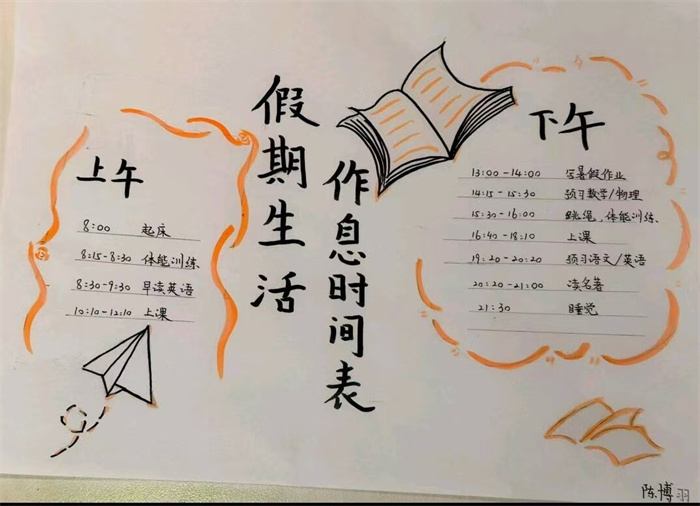 假期生活
作息时间表
上午
8:00 起床
8:15-8:30 体能训练
8:30-9:30 早读英语
10:10-12:10 上课
下午
13:00-14:00 写暑假作业
14:15-15:30 预习数学/物理
15:30-16:00 跳绳,体能训练
16:40-18:10 上课
19:20-20:20 预习语文/英语
20:20-21:00 读名著
21:30 睡觉
陈博羽